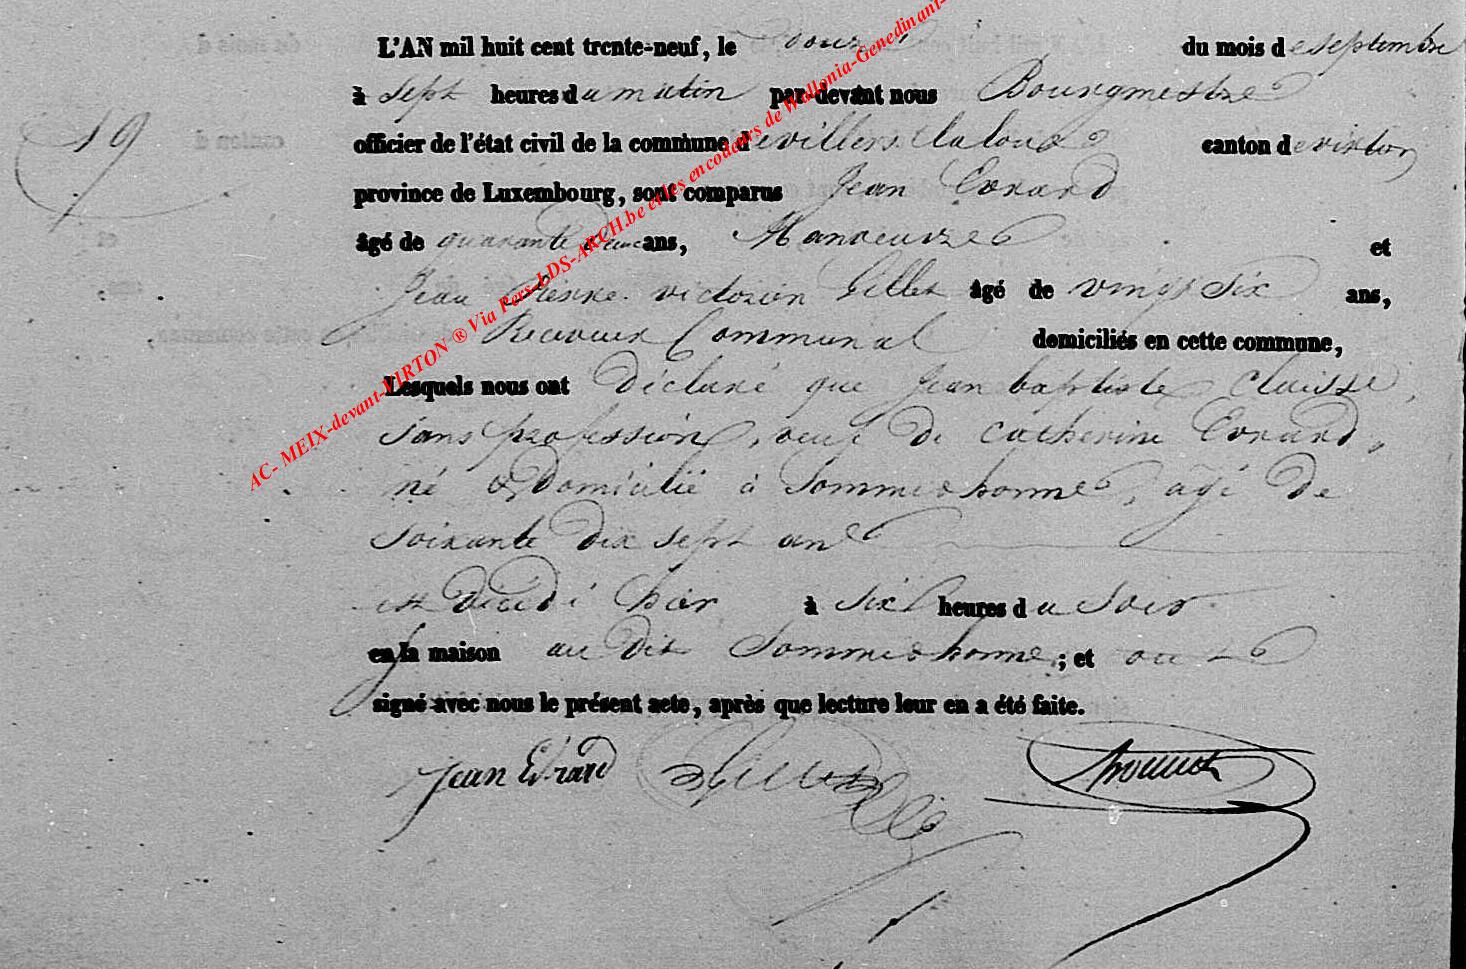 L'AN mil huit cent trente-neuf, le douze du mois de septembre
19
à sept heures du matin par-devant nous Bourgmestre
officier de l'état civil de la commune de villers la loue canton de virton
province de Luxembourg, sont comparus Jean Evrard
âgé de quarante deux ans, Manoeuvre et
Jean Pierre victorien Gillet âgé de vingt six ans,
Receveur Communal domiciliés en cette commune,
Lesquels nous ont déclaré que Jean baptiste Claisse,
sans profession, veuf de Catherine Evrard,
né et domicilié à Sommethonne, agé de
soixante dix sept ans
est décédé hier à six heures du soir
en la maison au dit Sommethonne; et ont
signé avec nous le présent acte, après que lecture leur en a été faite.
Jean Evrard Gillet
AC- MEIX-devant-VIRTON ® Via Pers-LDS-ARCH.be et les encodeurs de Wallonia-Genedinant-